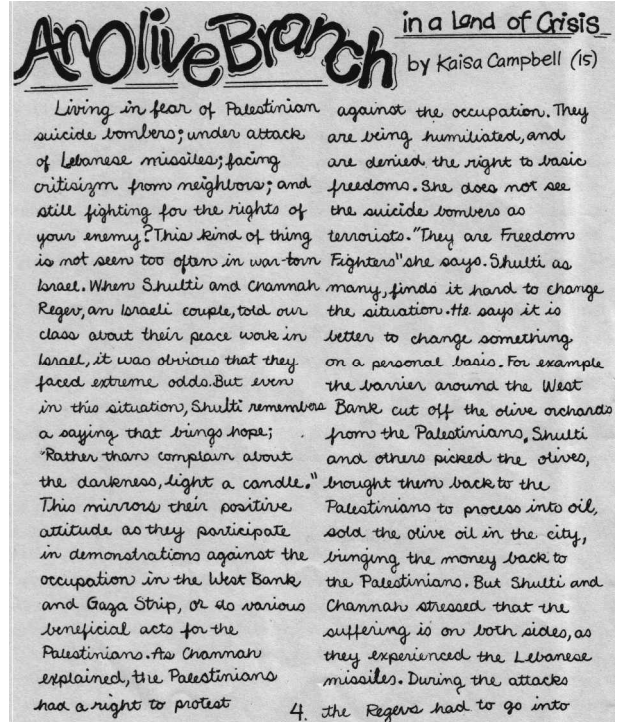 An Olive Branch
in a Land of Crisis
by Kaisa Campbell (15)
Living in fear of Palestinian
suicide bombers; under attack
of Lebanese missiles; facing
critisizm from neighbors; and
still fighting for the rights of
your enemy? This kind of thing
is not seen too often in war-torn
Israel. When Shulti and Channah
Regev, an Israeli couple, told our
class about their peace work in
Israel, it was obvious that they
faced extreme odds. But even
in this situation, Shulti remembers
a saying that brings hope;
"Rather than complain about
the darkness, light a candle."
This mirrors their positive
attitude as they participate
in demonstrations against the
occupation in the West Bank
and Gaza Strip, or do various
beneficial acts for the
Palestinians. As Channah
explained, the Palestinians
had a right to protest
against the occupation. They
are being humiliated, and
are denied the right to basic
freedoms. She does not see
the suicide bombers as
terrorists. "They are Freedom
Fighters" she says. Shulti as
many, finds it hard to change
the situation. He says it is
better to change something
on a personal basis. For example
the barrier around the West
Bank cut off the olive orchards
from the Palestinians. Shulti
and others picked the olives,
brought them back to the
Palestinians to process into oil,
sold the olive oil in the city,
bringing the money back to
the Palestinians. But Shulti and
Channah stressed that the
suffering is on both sides, as
they experienced the Lebanese
missiles. During the attacks
the Regevs had to go into
4.